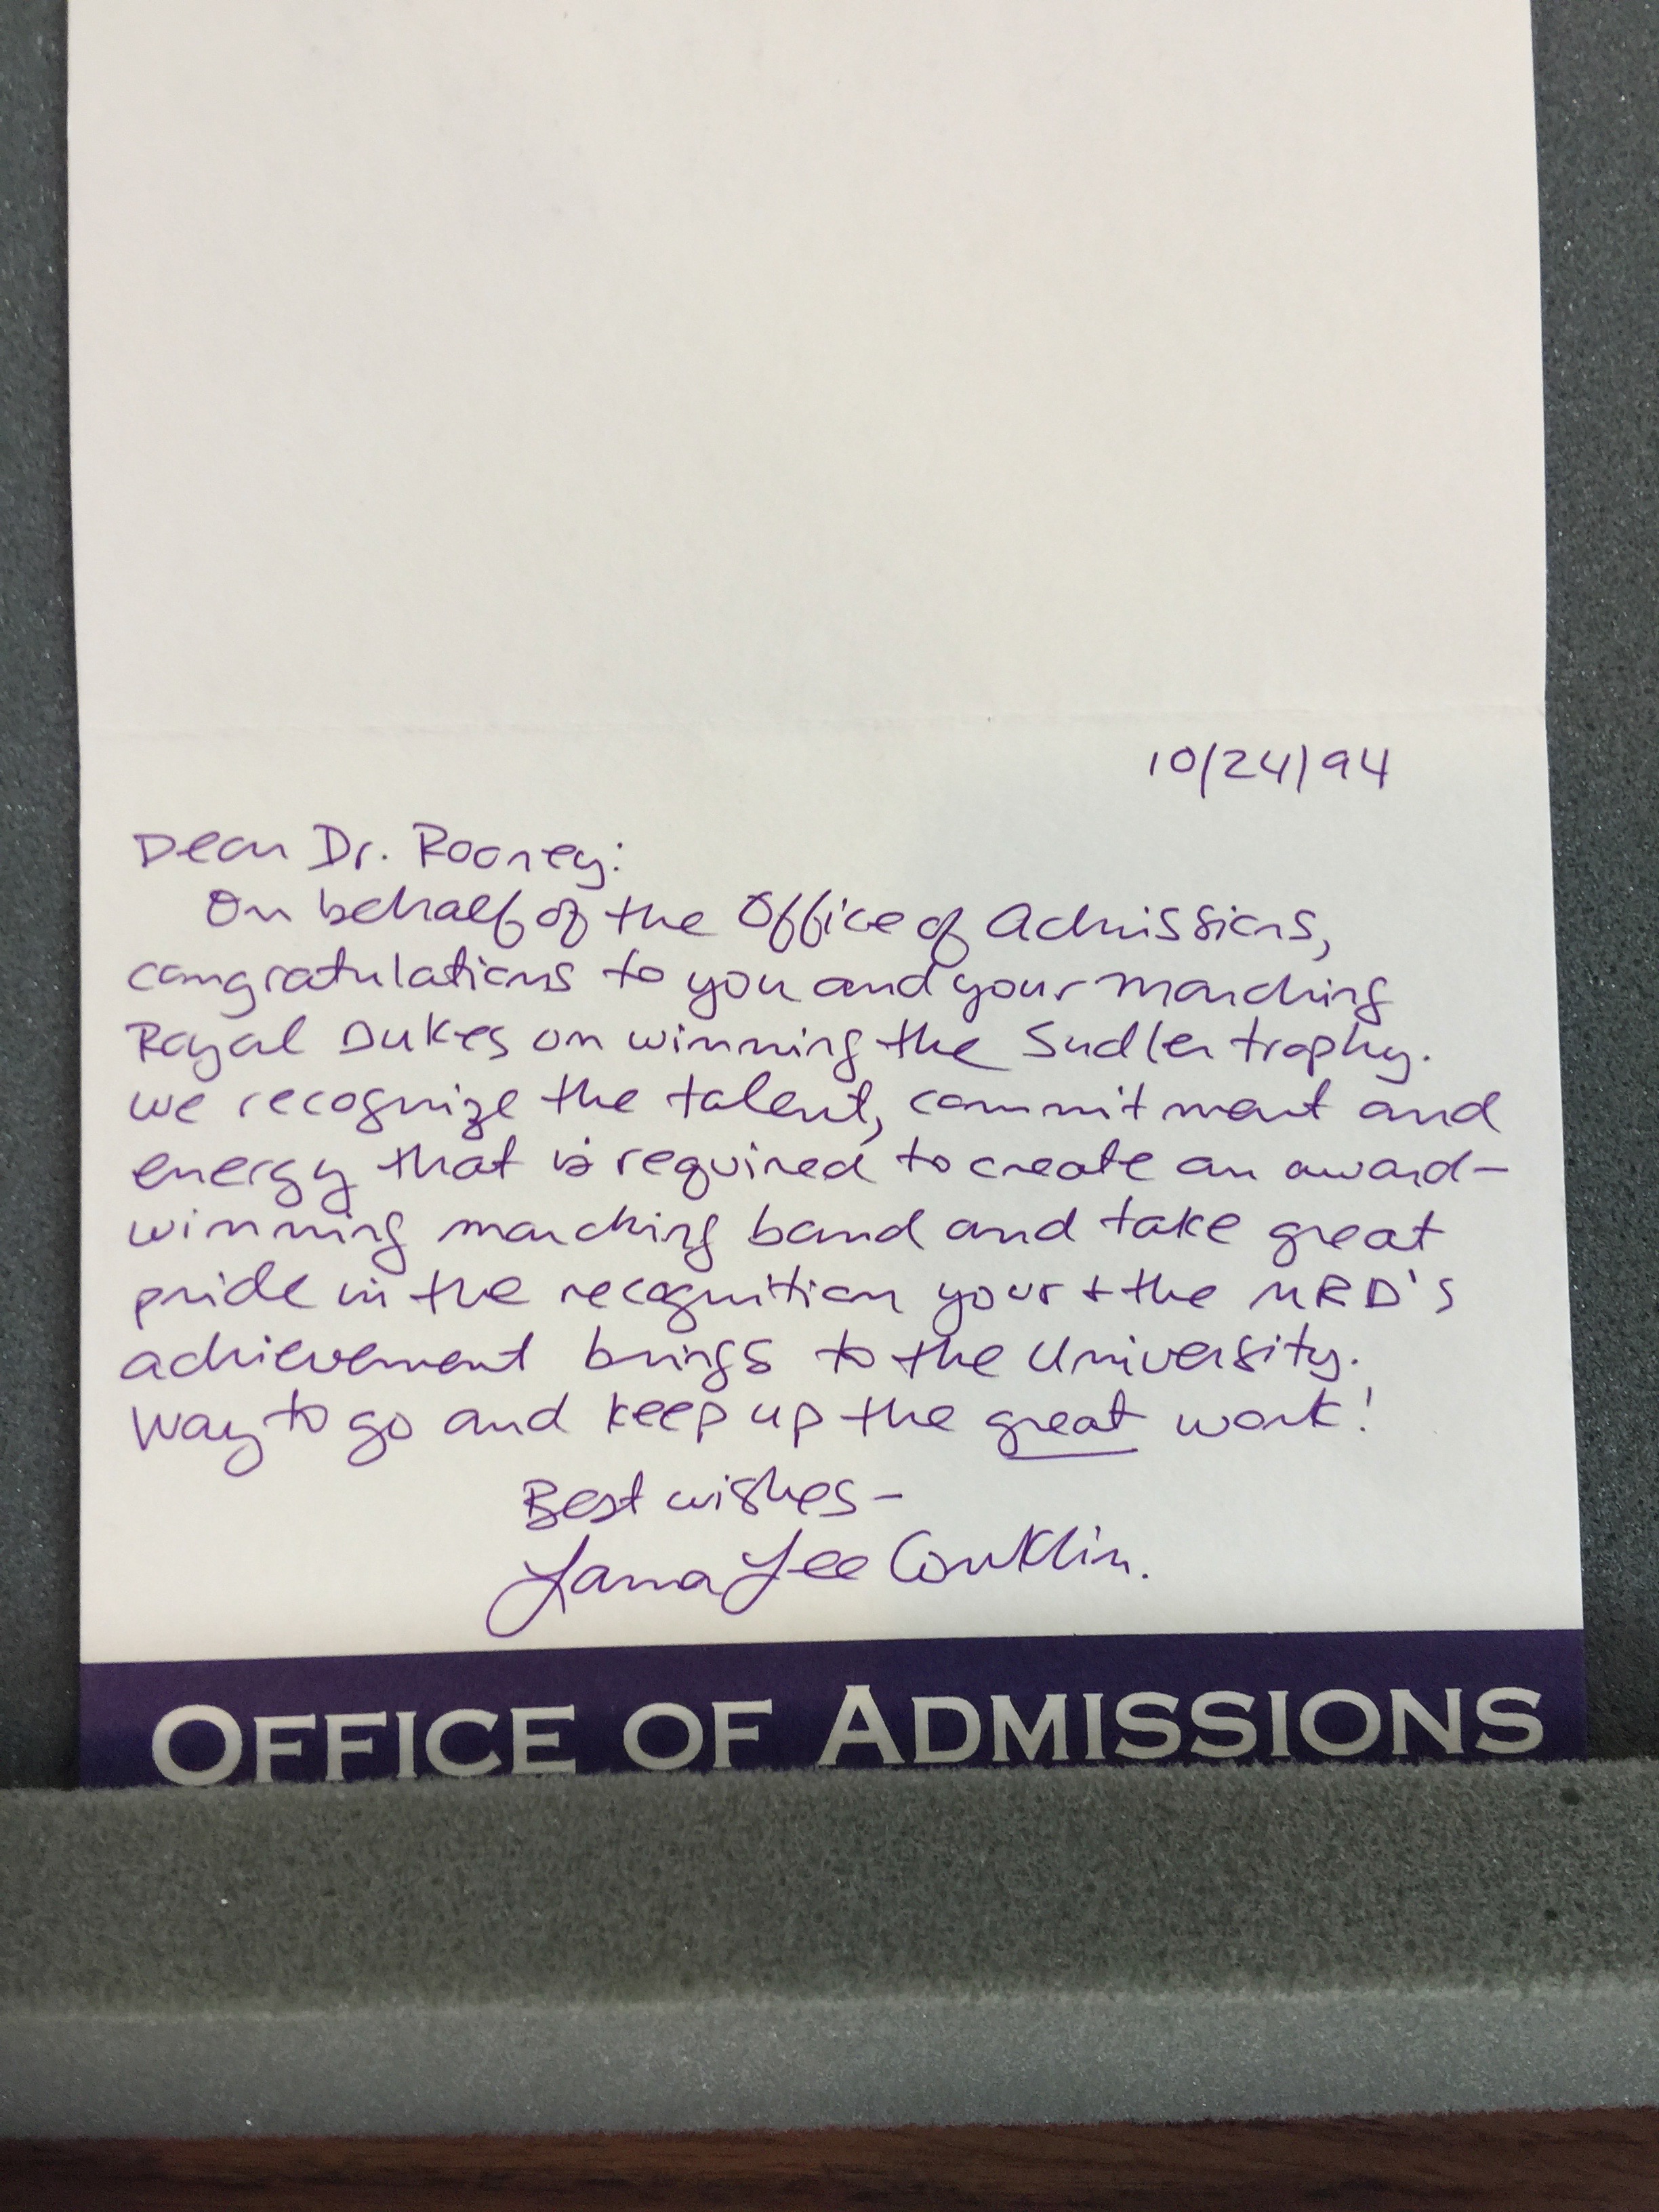 10/24/94
Dear Dr. Rooney:
On behalf of the Office of Admissions,
congratulations to you and your Marching
Royal Dukes on winning the Sudler trophy.
We recognize the talent, commitment and
energy that is required to create an award-
winning marching band and take great
pride in the recognition your + the MRD's
achievement brings to the University.
Way to go and keep up the great work!
Best wishes -
Lana Lee Conklin.
OFFICE OF ADMISSIONS